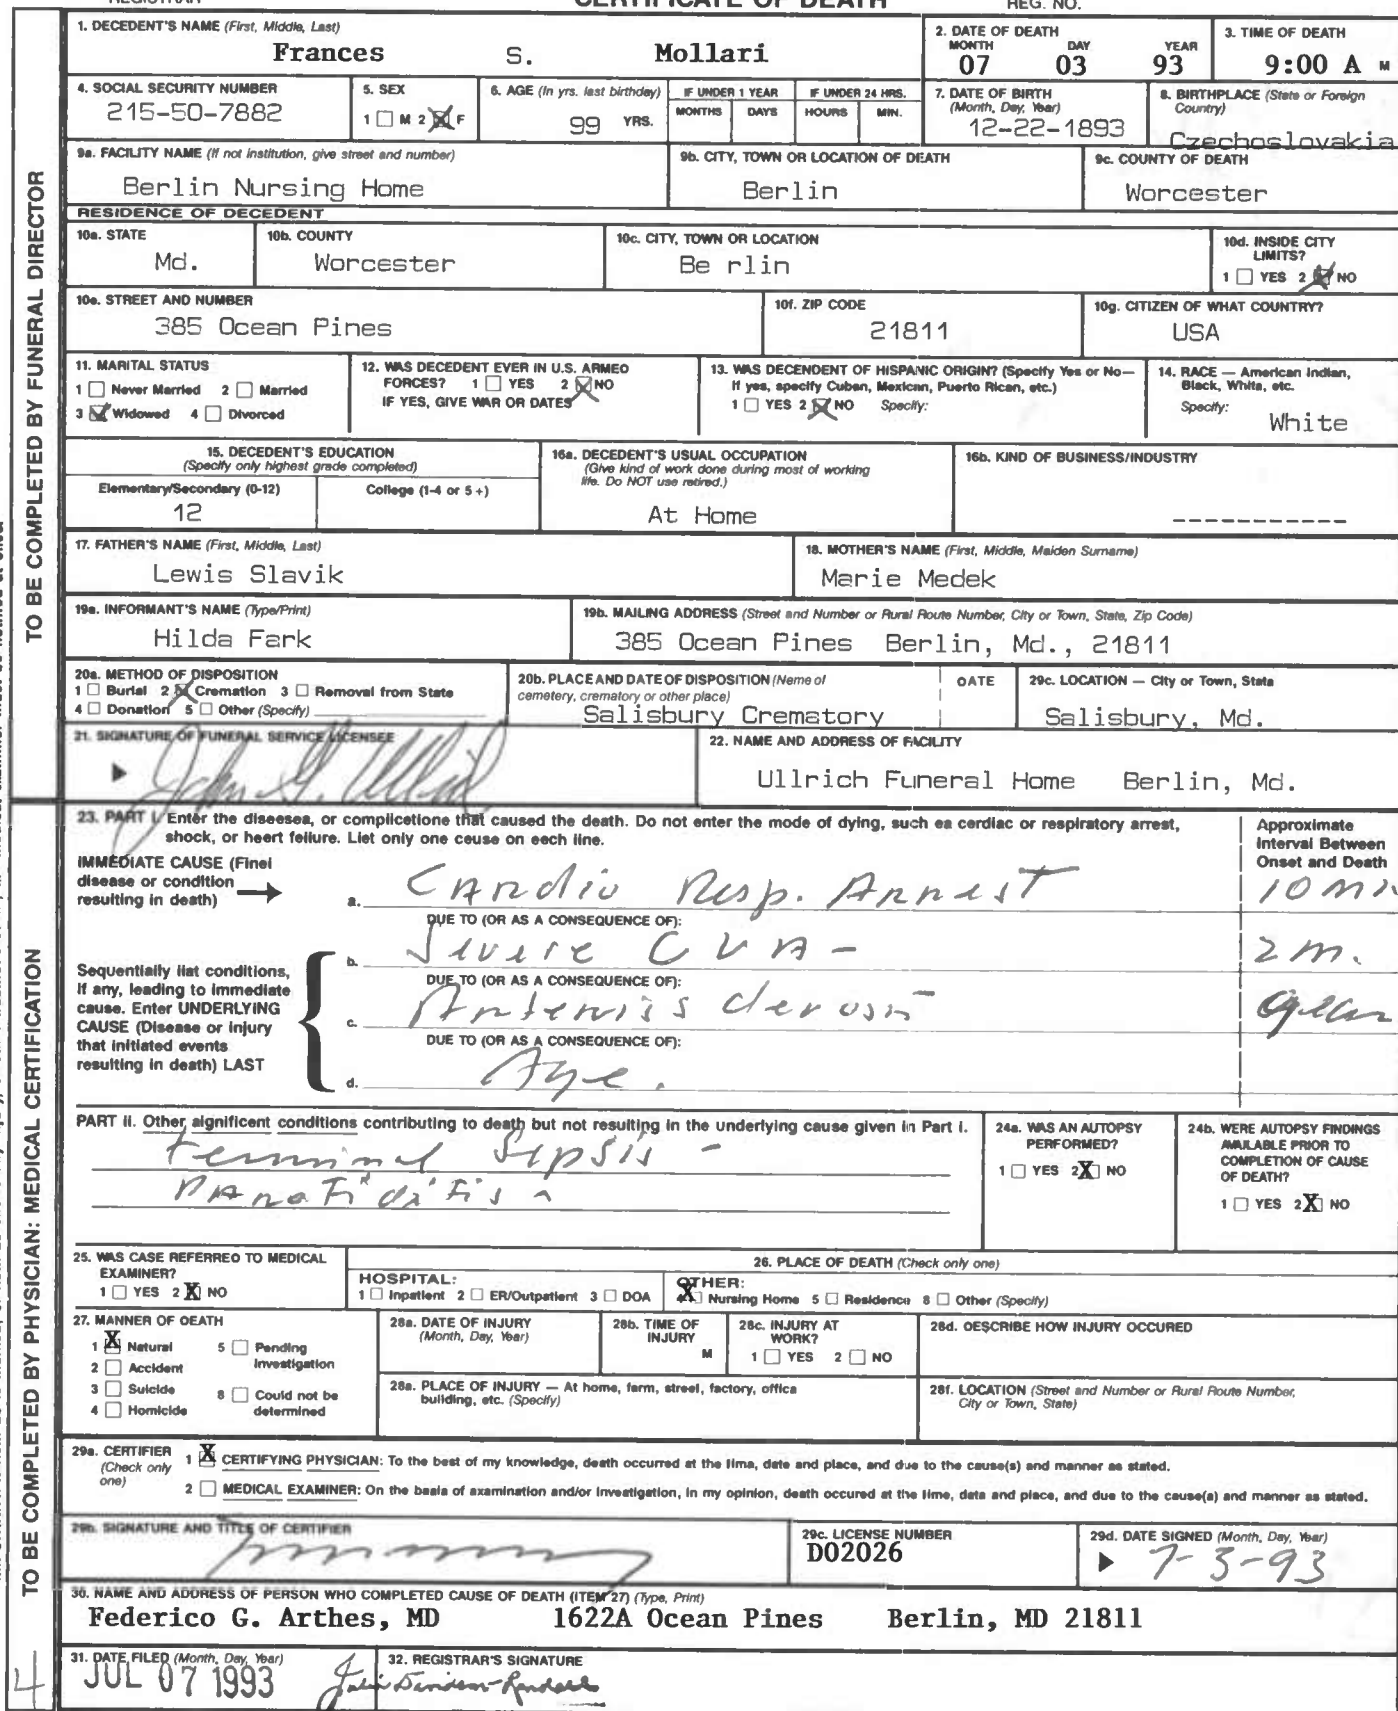 REGISTRAR CERTIFICATE OF DEATH REG. NO.
1. DECEDENT'S NAME (First, Middle, Last)
Frances S. Mollari
2. DATE OF DEATH
MONTH DAY YEAR
07 03 93
3. TIME OF DEATH
9:00 A M
4. SOCIAL SECURITY NUMBER
215-50-7882
5. SEX
1 M 2 F
6. AGE (In yrs. last birthday)
99 YRS.
IF UNDER 1 YEAR
MONTHS DAYS
IF UNDER 24 HRS.
HOURS MIN.
7. DATE OF BIRTH
(Month, Day, Year)
12-22-1893
8. BIRTHPLACE (State or Foreign
Country)
Czechoslovakia
9a. FACILITY NAME (If not institution, give street and number)
Berlin Nursing Home
9b. CITY, TOWN OR LOCATION OF DEATH
Berlin
9c. COUNTY OF DEATH
Worcester
RESIDENCE OF DECEDENT
10a. STATE
Md.
10b. COUNTY
Worcester
10c. CITY, TOWN OR LOCATION
Be rlin
10d. INSIDE CITY
LIMITS?
1 YES 2 NO
10e. STREET AND NUMBER
385 Ocean Pines
10f. ZIP CODE
21811
10g. CITIZEN OF WHAT COUNTRY?
USA
11. MARITAL STATUS
1 Never Married 2 Married
3 Widowed 4 Divorced
12. WAS DECEDENT EVER IN U.S. ARMED
FORCES? 1 YES 2 NO
IF YES, GIVE WAR OR DATES
13. WAS DECENDENT OF HISPANIC ORIGIN? (Specify Yes or No—
If yes, specify Cuban, Mexican, Puerto Rican, etc.)
1 YES 2 NO Specify:
14. RACE — American Indian,
Black, White, etc.
Specify:
White
15. DECEDENT'S EDUCATION
(Specify only highest grade completed)
Elementary/Secondary (0-12) College (1-4 or 5+)
12
16a. DECEDENT'S USUAL OCCUPATION
(Give kind of work done during most of working
life. Do NOT use retired.)
At Home
16b. KIND OF BUSINESS/INDUSTRY
-----------
17. FATHER'S NAME (First, Middle, Last)
Lewis Slavik
18. MOTHER'S NAME (First, Middle, Maiden Surname)
Marie Medek
19a. INFORMANT'S NAME (Type/Print)
Hilda Fark
19b. MAILING ADDRESS (Street and Number or Rural Route Number, City or Town, State, Zip Code)
385 Ocean Pines Berlin, Md., 21811
20a. METHOD OF DISPOSITION
1 Burial 2 Cremation 3 Removal from State
4 Donation 5 Other (Specify)
20b. PLACE AND DATE OF DISPOSITION (Name of
cemetery, crematory or other place)
Salisbury Crematory
DATE
29c. LOCATION — City or Town, State
Salisbury, Md.
21. SIGNATURE OF FUNERAL SERVICE LICENSEE
22. NAME AND ADDRESS OF FACILITY
Ullrich Funeral Home Berlin, Md.
TO BE COMPLETED BY FUNERAL DIRECTOR
23. PART I. Enter the diseases, or complications that caused the death. Do not enter the mode of dying, such as cardiac or respiratory arrest,
shock, or heart failure. List only one cause on each line.
Approximate
Interval Between
Onset and Death
IMMEDIATE CAUSE (Final
disease or condition
resulting in death)
a. Cardio Resp. Arrest 10 mn
DUE TO (OR AS A CONSEQUENCE OF):
b. Severe CVA - 2 m.
Sequentially list conditions,
if any, leading to immediate
cause. Enter UNDERLYING
CAUSE (Disease or injury
that initiated events
resulting in death) LAST
DUE TO (OR AS A CONSEQUENCE OF):
c. Arteriosclerosis
DUE TO (OR AS A CONSEQUENCE OF):
d. Age.
PART II. Other significant conditions contributing to death but not resulting in the underlying cause given in Part I.
Terminal Sepsis -
Parotiditis
24a. WAS AN AUTOPSY
PERFORMED?
1 YES 2 X NO
24b. WERE AUTOPSY FINDINGS
AVAILABLE PRIOR TO
COMPLETION OF CAUSE
OF DEATH?
1 YES 2 X NO
25. WAS CASE REFERRED TO MEDICAL
EXAMINER?
1 YES 2 X NO
26. PLACE OF DEATH (Check only one)
HOSPITAL:
1 Inpatient 2 ER/Outpatient 3 DOA
OTHER:
4 X Nursing Home 5 Residence 6 Other (Specify)
27. MANNER OF DEATH
1 X Natural 5 Pending
Investigation
2 Accident
3 Suicide 6 Could not be
determined
4 Homicide
28a. DATE OF INJURY
(Month, Day, Year)
28b. TIME OF
INJURY
M
28c. INJURY AT
WORK?
1 YES 2 NO
28d. DESCRIBE HOW INJURY OCCURED
28e. PLACE OF INJURY — At home, farm, street, factory, office
building, etc. (Specify)
28f. LOCATION (Street and Number or Rural Route Number,
City or Town, State)
29a. CERTIFIER
(Check only
one)
1 X CERTIFYING PHYSICIAN: To the best of my knowledge, death occurred at the time, date and place, and due to the cause(s) and manner as stated.
2 MEDICAL EXAMINER: On the basis of examination and/or investigation, in my opinion, death occured at the time, date and place, and due to the cause(s) and manner as stated.
29b. SIGNATURE AND TITLE OF CERTIFIER
29c. LICENSE NUMBER
D02026
29d. DATE SIGNED (Month, Day, Year)
7-3-93
30. NAME AND ADDRESS OF PERSON WHO COMPLETED CAUSE OF DEATH (ITEM 27) (Type, Print)
Federico G. Arthes, MD 1622A Ocean Pines Berlin, MD 21811
31. DATE FILED (Month, Day, Year)
JUL 07 1993
32. REGISTRAR'S SIGNATURE
TO BE COMPLETED BY PHYSICIAN: MEDICAL CERTIFICATION
4